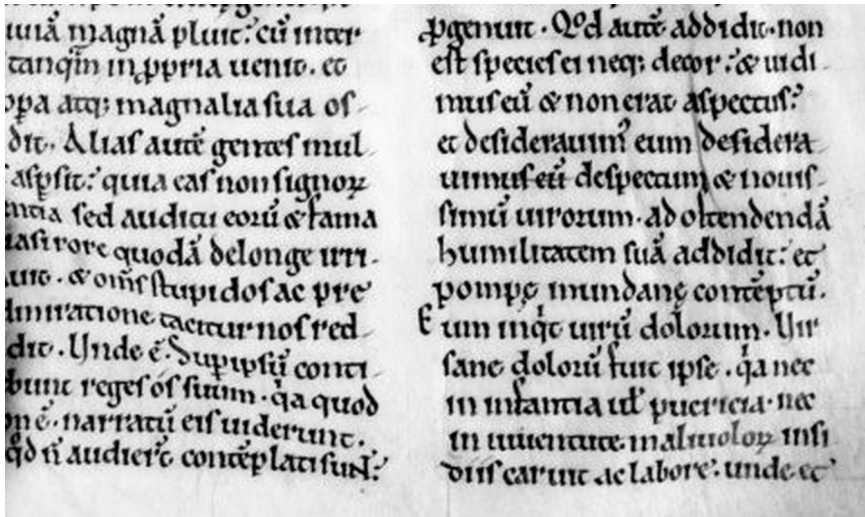 magnā pluit: cū inter
tanqm̄ in ꝓpria uenit. et
oꝑa atq; magnalia sua os-
dit. Alias autē gentes mul-
aspsit: quia eas non signoꝝ
entia sed auditu eorū & fama
uasi rore quodā delonge irri-
auit. & om̄s stupidos ac pre
dmiratione red-
dit. Unde ē. Suꝑ ipsū conti-
bunt reges os suum. qͥa quod
on ē. narratū eis uiderunt.
qd n̄ audier̄t contēplati sunt:
ꝓgenuit. Qd autē addidit. non
est species ei neq; decor: & uidi-
mus eū & non erat aspectus:
et desiderauim⁹ eum desidera
uimus eū despectum & nouis-
simū uirorum. ad ostendendā
humilitatem suā addidit: et
pompę mundanę contēptū.
Eum inqͥt uirū dolorum. Uir
sane dolorū fuit ipse. qͥa nec
in infantia ul̄ puericia. nec
in iuuentute maliuoloꝝ insi
diis caruit ac labore. unde et